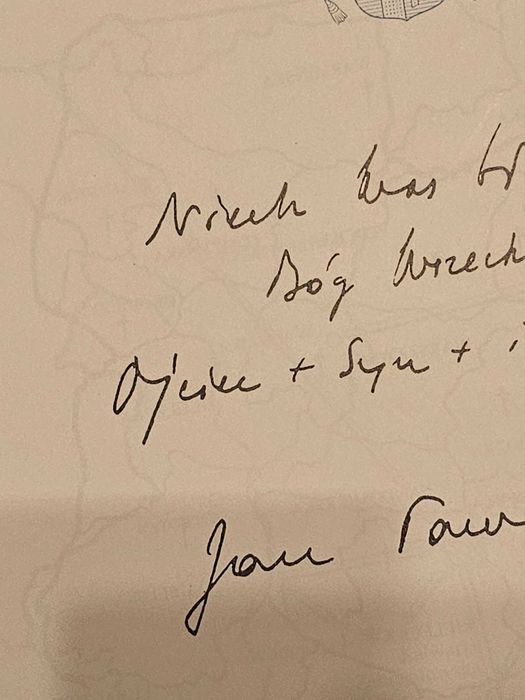 Niech Was bł
Bóg Wszech
Ojciec + Syn + i
Jan Paw